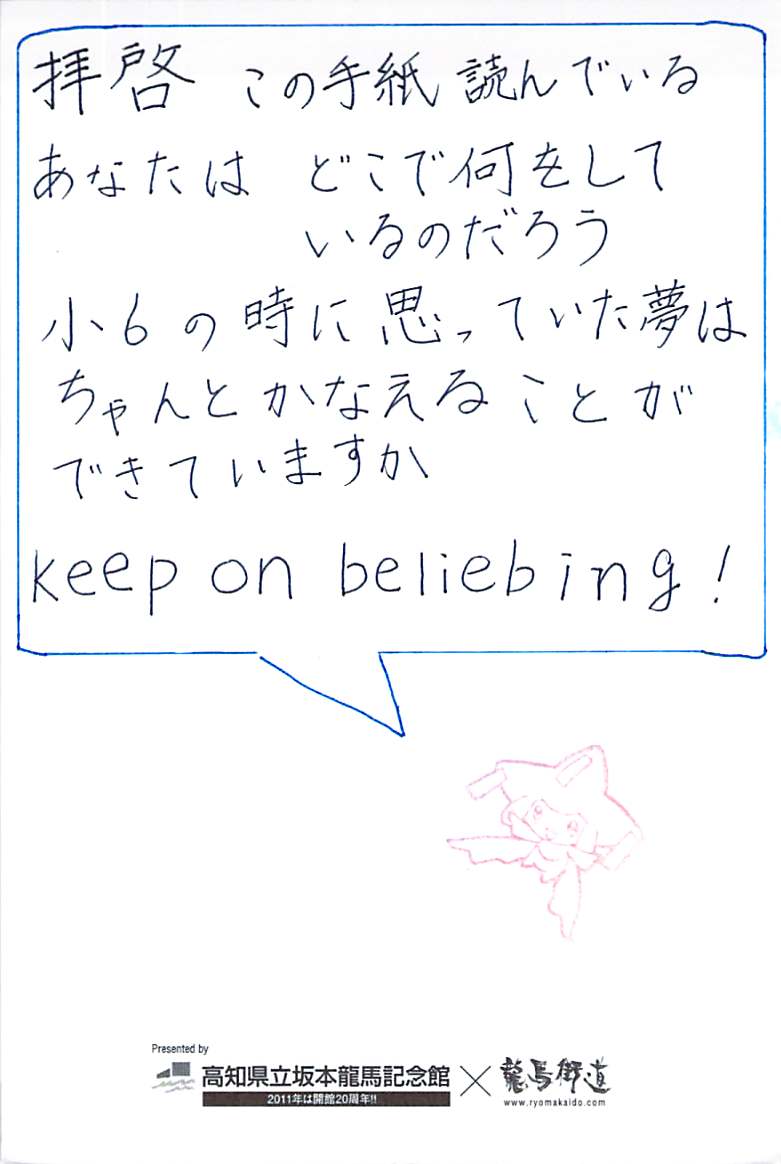 拝啓 この手紙 読んでいる
あなたは どこで何をして
いるのだろう
小6の時に思っていた夢は
ちゃんとかなえることが
できていますか
keep on beliebing!
Presented by
高知県立坂本龍馬記念館×龍馬街道
2011年は開館20周年!!
www.ryomakaido.com